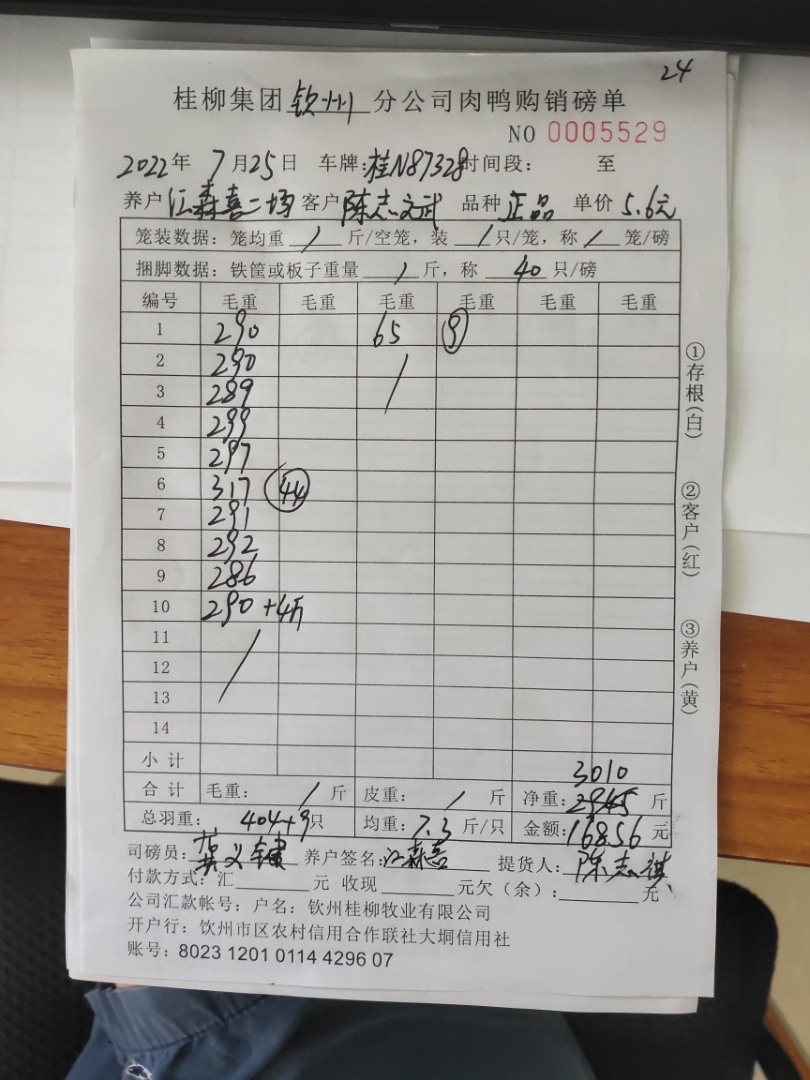 24
桂柳集团 钦州 分公司肉鸭购销磅单
NO 0005529
2022年 7月25日 车牌:桂N87328 时间段: 至
养户 江森喜二场 客户 陈志文武 品种 正品 单价 5.6元
笼装数据: 笼均重 / 斤/空笼, 装 / 只/笼, 称 / 笼/磅
捆脚数据: 铁筐或板子重量 / 斤, 称 40 只/磅
编号 毛重 毛重 毛重 毛重 毛重 毛重
1 290 65 9
2 290 /
3 289
4 299
5 297
6 317 44
7 291
8 292
9 286
10 290+4斤
11 /
12
13
14
小计
3010
合计 毛重: / 斤 皮重: / 斤 净重: 2945 斤
总羽重: 404+9只 均重: 7.3斤/只 金额: 16856元
司磅员: 义 养户签名: 江森喜 提货人: 陈志
付款方式: 汇 元 收现 元欠(余): 元
公司汇款帐号: 户名: 钦州桂柳牧业有限公司
开户行: 钦州市区农村信用合作联社大垌信用社
账号: 8023 1201 0114 4296 07
①存根(白)
②客户(红)
③养户(黄)